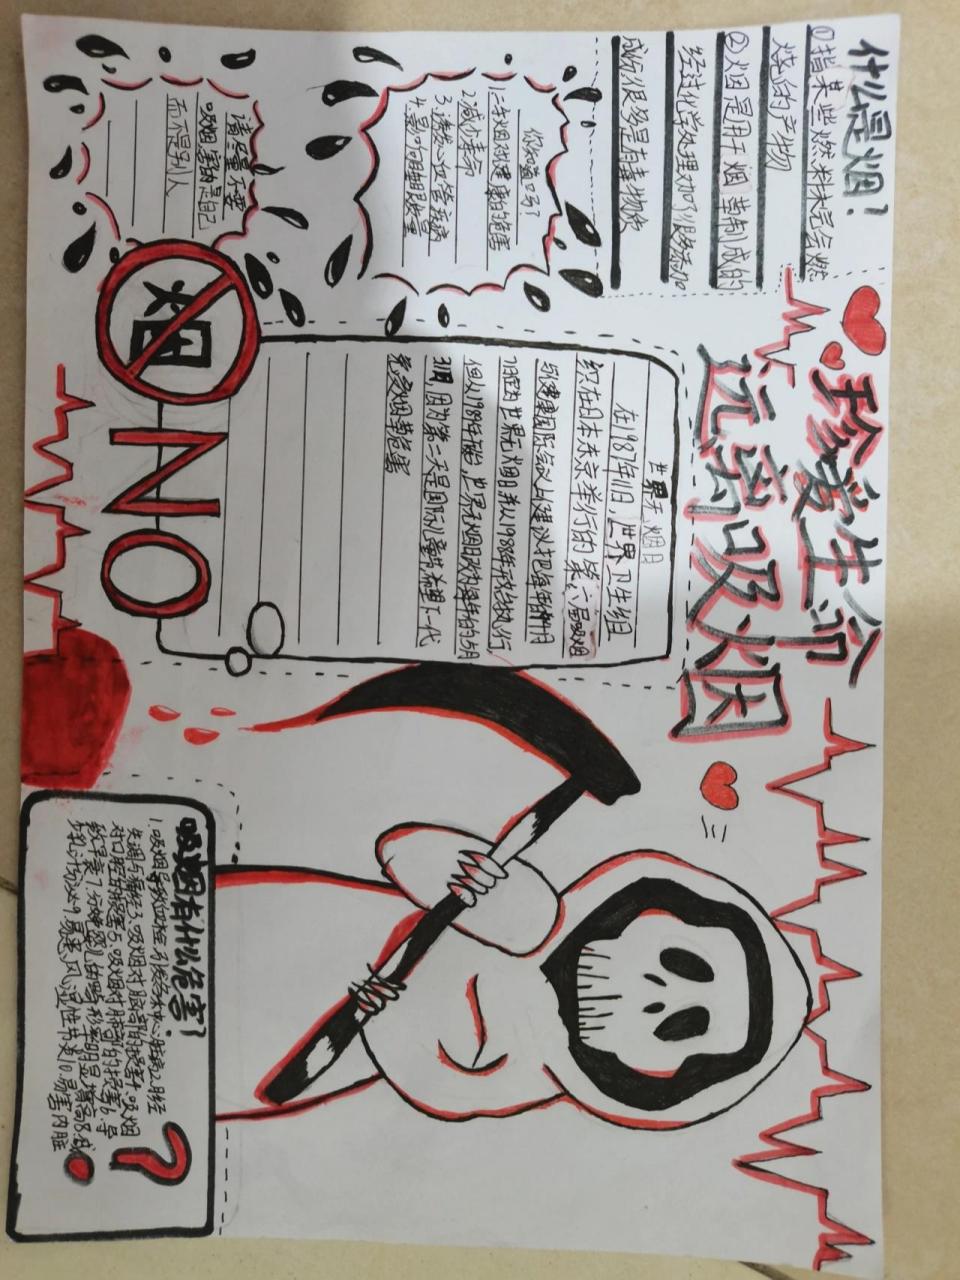 珍爱生命
远离吸烟
什么是烟?
①指某些燃料未完会燃
烧的产物
②烟是用烟草制成的
经过化学处理加了很多添加
成份很多是有毒物质
你知道吗?
1.二手烟对健康的危害
2.减少寿命
3.诱发心血管疾病
4.影响组织修复
请尽量不要
吸烟害的是自己
而不是别人
烟
NO
世界无烟日
在1987年11月,世界卫生组
织在日本东京举行的第六届吸烟
与健康国际会议上建议把每年的4月
7日定为世界无烟日并从1988年开始执行,
但从1989年开始,世界无烟日改为每年的5月
31日,因为第二天是国际儿童节希望下一代
免受烟草危害
吸烟有什么危害?
1.吸烟导致血栓引发多种心脏病2.月经
失调与痛经3.吸烟对脑部的损害4.吸烟
对口腔的损害5.吸烟对肺部的损害6.导
致早衰7.分娩婴儿畸形率明显增高8.减
少乳汁分泌9.易患风湿性节炎10.易害内脏
?